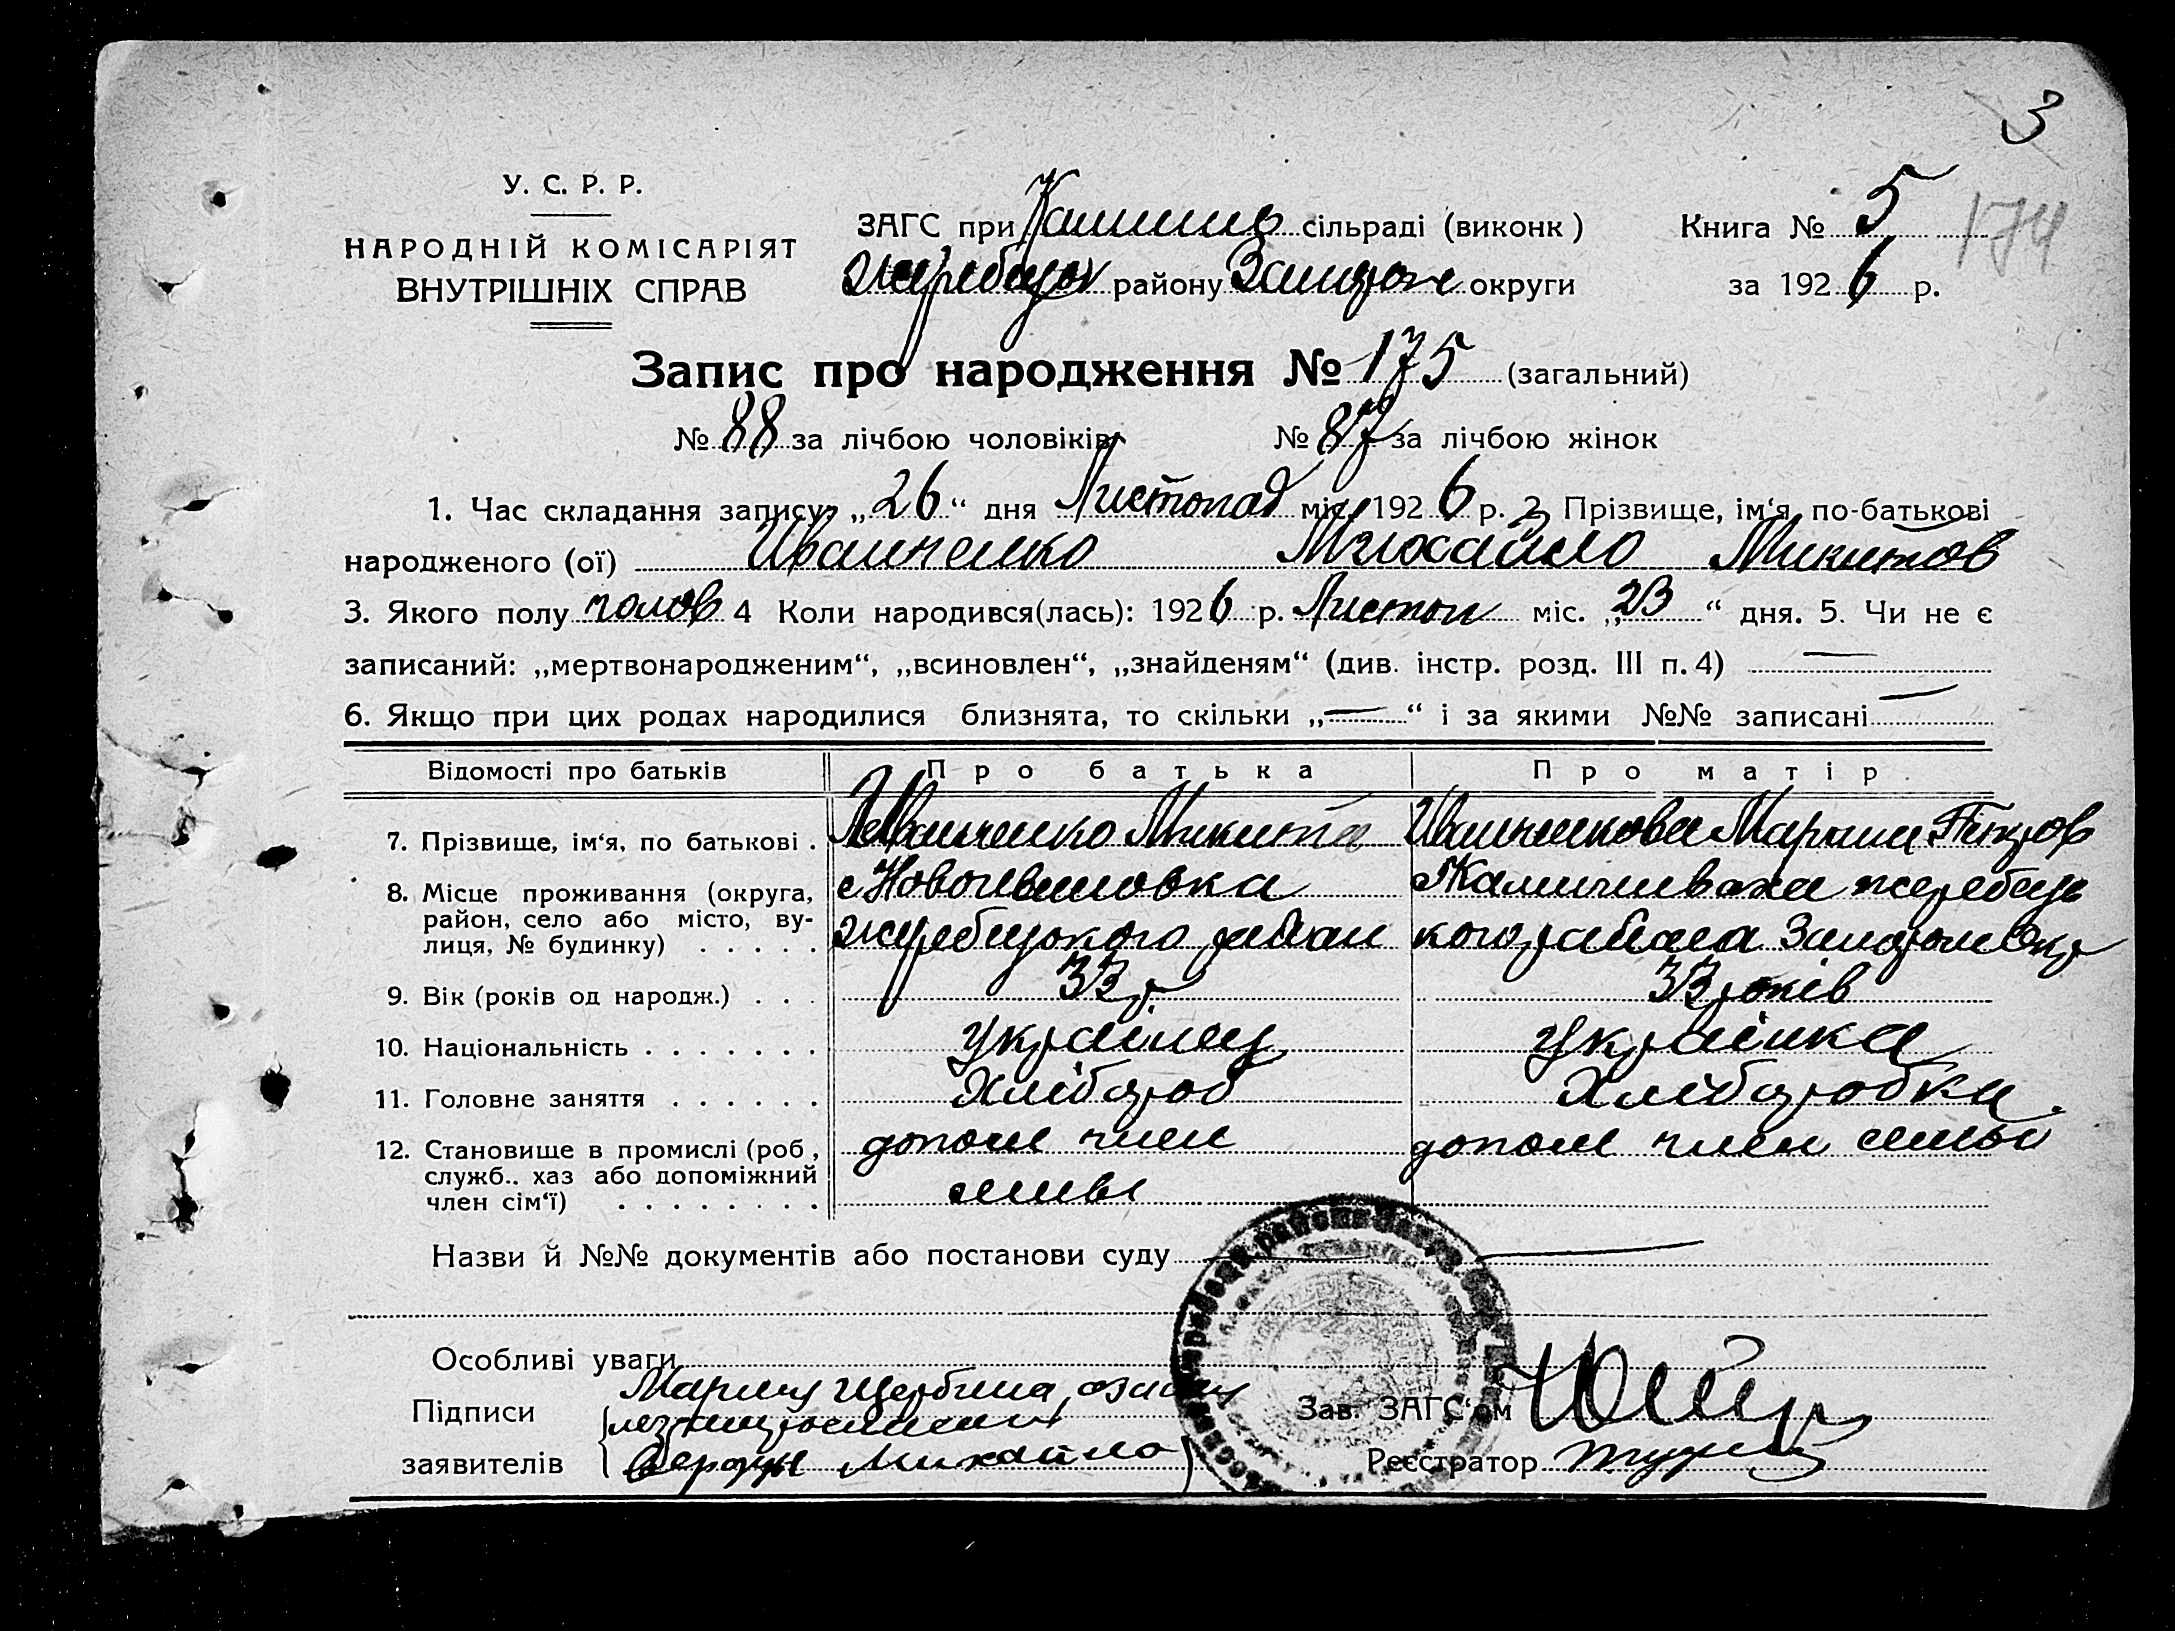 3
У. С. Р. Р.
НАРОДНІЙ КОМІСАРІЯТ
ВНУТРІШНІХ СПРАВ
ЗАГС при Камиш сільраді (виконк)
Жеребець району Запорож округи
Книга № 5 174
за 1926 р.
Запис про народження № 175 (загальний)
№ 88 за лічбою чоловіків № 87 за лічбою жінок
1. Час складання запису „26“ дня Листопад міс. 1926 р. 2. Прізвище, ім‘я, по-батькові
народженого (ої) Иванченко Михайло Микитов
3. Якого полу чолов 4 Коли народився(лась): 1926 р. Листоп міс. „23“ дня. 5. Чи не є
записаний: „мертвонародженим“, „всиновлен“, „знайденям“ (див. інстр. розд. III п. 4) —
6. Якщо при цих родах народилися близнята, то скільки „—“ і за якими №№ записані —
Відомості про батьків Про батька Про матір
7. Прізвище, ім‘я, по батькові . Иванченко Микита Иванченкова Мариа Петров
8. Місце проживання (округа, район, село або місто, вулиця, № будинку) . . . . .
с Новоивановка
жеребецького район
Камишеваха жеребець
кого района Запорож Окр
9. Вік (років од народж.) . . . 33 р. 33 років
10. Національність . . . . . . . українец українка
11. Головне заняття . . . . . . Хлібороб Хліборобка
12. Становище в промислі (роб, служб.. хаз або допоміжний член сім‘ї) . . . . . . . .
допом член
семьи
допом член семьи
Назви й №№ документів або постанови суду —
Особливі уваги
Підписи
заявителів
Мария Щербина, за
Михайло
Зав. ЗАГС‘ом
Реєстратор